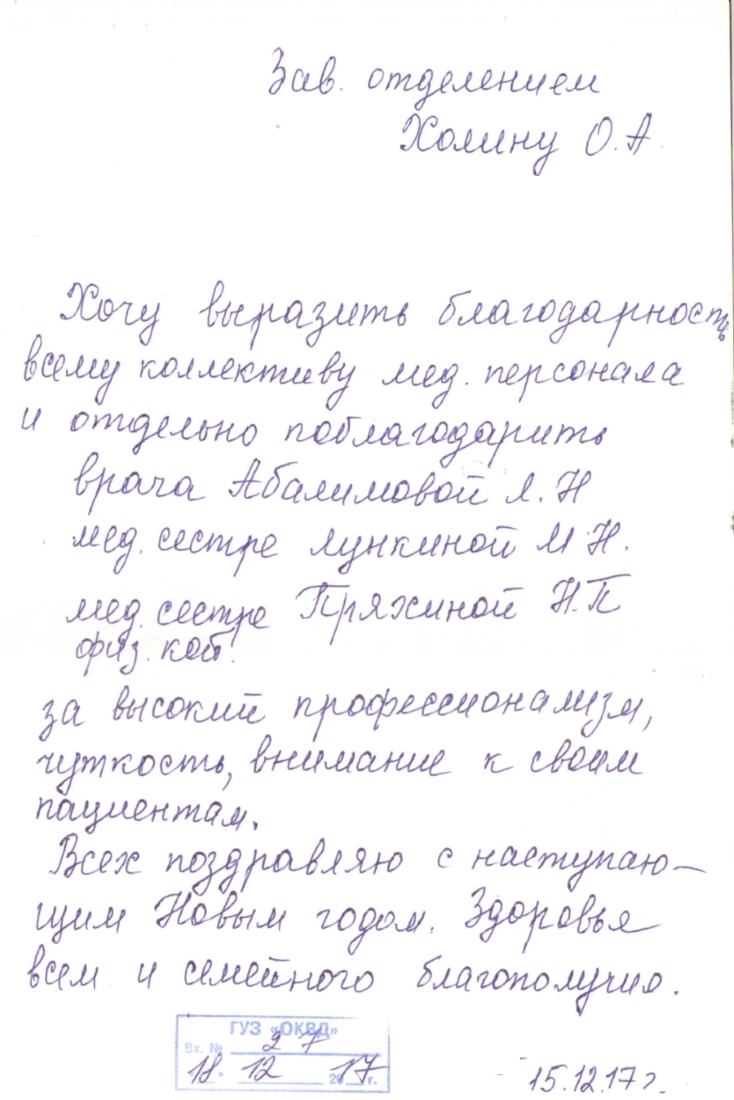 Зав. отделением
Холину О.А.
Хочу выразить благодарность
всему коллективу мед. персонала
и отдельно поблагодарить
врача Абалимовой Л.Н
мед. сестре Лункиной М Н.
мед. сестре Пряхиной Н.П
физ. каб.
за высокий профессионализм,
чуткость, внимание к своим
пациентам.
Всех поздравляю с наступаю-
щим Новым годом. Здоровья
всем и семейного благополучия.
ГУЗ «ОКВД»
Вх. № 27
18. 12 2017 г.
15.12.17 г.